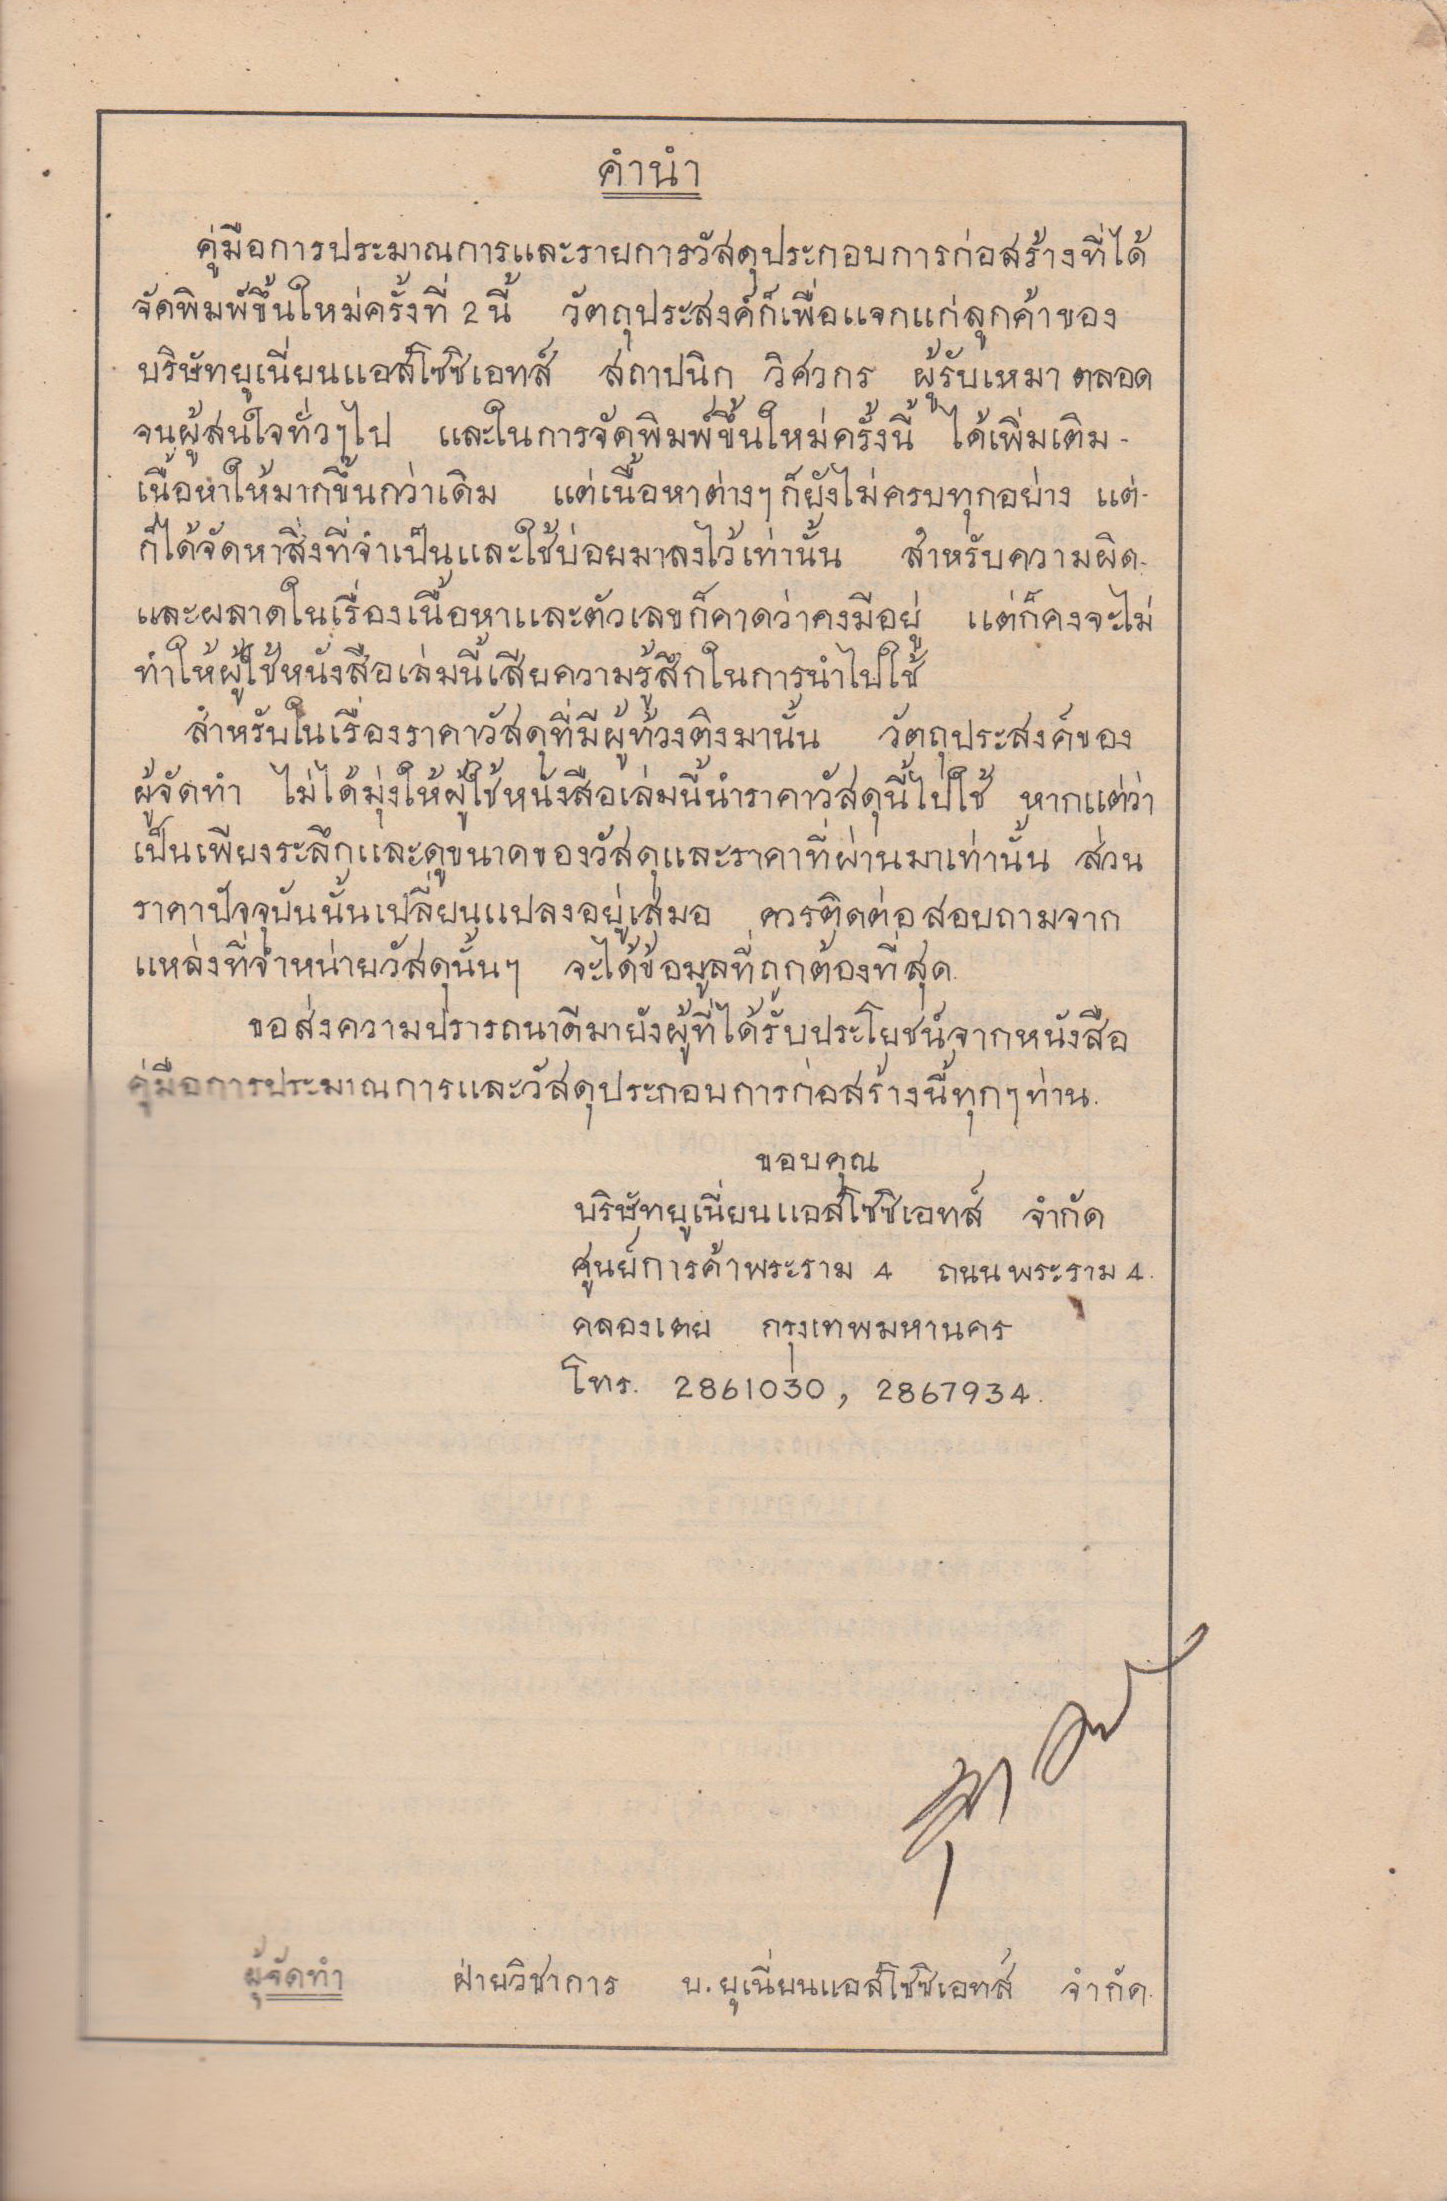 คำนำ
คู่มือการประมาณการและรายการวัสดุประกอบการก่อสร้างที่ได้
จัดพิมพ์ขึ้นใหม่ครั้งที่ 2 นี้ วัตถุประสงค์ก็เพื่อแจกแก่ลูกค้าของ
บริษัทยูเนี่ยนแอสโซซิเอทส์ สถาปนิก วิศวกร ผู้รับเหมา ตลอด
จนผู้สนใจทั่วๆไป และในการจัดพิมพ์ขึ้นใหม่ครั้งนี้ ได้เพิ่มเติม -
เนื้อหาให้มากขึ้นกว่าเดิม แต่เนื้อหาต่างๆ ก็ยังไม่ครบทุกอย่าง แต่ -
ก็ได้จัดหาสิ่งที่จำเป็นและใช้บ่อยมาลงไว้เท่านั้น สำหรับความผิด -
และผลาดในเรื่องเนื้อหาและตัวเลขก็คาดว่าคงมีอยู่ แต่ก็คงจะไม่
ทำให้ผู้ใช้หนังสือเล่มนี้เสียความรู้สึกในการนำไปใช้
สำหรับในเรื่องราคาวัสดุที่มีผู้ท้วงติงมานั้น วัตถุประสงค์ของ
ผู้จัดทำ ไม่ได้มุ่งให้ผู้ใช้หนังสือเล่มนี้นำราคาวัสดุนี้ไปใช้ หากแต่ว่า
เป็นเพียงระลึกและดูขนาดของวัสดุและราคาที่ผ่านมาเท่านั้น ส่วน
ราคาปัจจุบันนั้นเปลี่ยนแปลงอยู่เสมอ ควรติดต่อสอบถามจาก
แหล่งที่จำหน่ายวัสดุนั้นๆ จะได้ข้อมูลที่ถูกต้องที่สุด.
ขอส่งความปรารถนาดีมายังผู้ที่ได้รับประโยชน์จากหนังสือ
คู่มือการประมาณการและวัสดุประกอบการก่อสร้างนี้ทุกๆท่าน.
ขอบคุณ
บริษัทยูเนี่ยนแอสโซซิเอทส์ จำกัด
ศูนย์การค้าพระราม 4 ถนนพระราม 4.
คลองเตย กรุงเทพมหานคร
โทร. 2861030, 2867934.
ผู้จัดทำ ฝ่ายวิชาการ บ. ยูเนี่ยนแอสโซซิเอทส์ จำกัด.